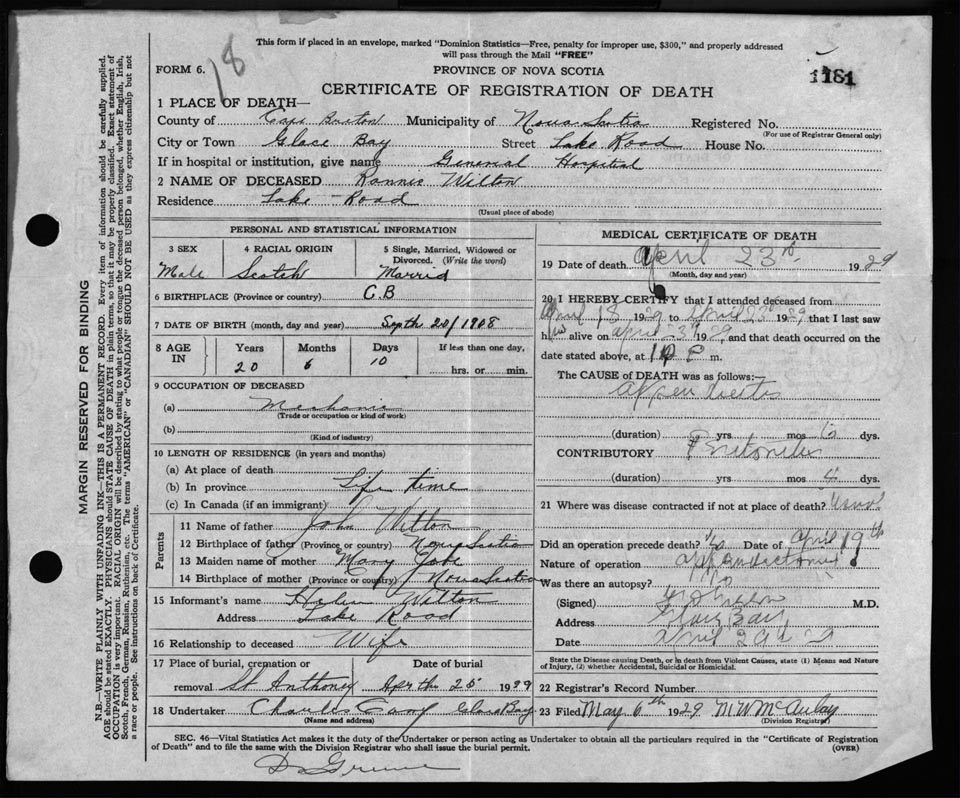 18
This form if placed in an envelope, marked "Dominion Statistics—Free, penalty for improper use, $300," and properly addressed
will pass through the Mail "FREE"
FORM 6.
PROVINCE OF NOVA SCOTIA
1181
CERTIFICATE OF REGISTRATION OF DEATH
1 PLACE OF DEATH—
County of Cape Breton Municipality of Nova Scotia Registered No.
(For use of Registrar General only)
City or Town Glace Bay Street Lake Road House No.
If in hospital or institution, give name General Hospital
2 NAME OF DECEASED Ronnie Wilton
Residence Lake Road
(Usual place of abode)
PERSONAL AND STATISTICAL INFORMATION
3 SEX 4 RACIAL ORIGIN 5 Single, Married, Widowed or
Divorced. (Write the word)
Male Scotch Marrid
6 BIRTHPLACE (Province or country) C.B
7 DATE OF BIRTH (month, day and year) Septh 20/1908
8 AGE IN Years Months Days If less than one day,
20 6 10 hrs. or min.
9 OCCUPATION OF DECEASED
(a) Mechanic
(Trade or occupation or kind of work)
(b)
(Kind of industry)
10 LENGTH OF RESIDENCE (in years and months)
(a) At place of death
(b) In province Life time
(c) In Canada (if an immigrant)
Parents
11 Name of father John Wilton
12 Birthplace of father (Province or country) Nova Scotia
13 Maiden name of mother Mary
14 Birthplace of mother (Province or country) Nova Scotia
15 Informant's name Helen Wilton
Address Lake Road
16 Relationship to deceased Wife
17 Place of burial, cremation or Date of burial
removal St Anthony 25 1929
18 Undertaker Charles Glace Bay
(Name and address)
MEDICAL CERTIFICATE OF DEATH
19 Date of death April 23rd 1929
(Month, day and year)
20 I HEREBY CERTIFY that I attended deceased from
April 18 1929 to April 23 1929, that I last saw
him alive on April 23 1929, and that death occurred on the
date stated above, at P m.
The CAUSE OF DEATH was as follows:—
Appendicitis
(duration) yrs mos 6 dys.
CONTRIBUTORY Peritonitis
(duration) yrs mos 4 dys.
21 Where was disease contracted if not at place of death?
Did an operation precede death? Date of April 19th
Nature of operation Appendectomy
Was there an autopsy?
(Signed) M.D.
Address Glace Bay
Date April 29
State the Disease causing Death, or in death from Violent Causes, state (1) Means and Nature
of Injury, (2) whether Accidental, Suicidal or Homicidal.
22 Registrar's Record Number
23 Filed May 6th 1929 M W McAulay
(Division Registrar)
SEC. 46—Vital Statistics Act makes it the duty of the Undertaker or person acting as Undertaker to obtain all the particulars required in the "Certificate of Registration
of Death" and to file the same with the Division Registrar who shall issue the burial permit.
(OVER)
MARGIN RESERVED FOR BINDING
N.B.—WRITE PLAINLY WITH UNFADING INK—THIS IS A PERMANENT RECORD. Every item of information should be carefully supplied.
AGE should be stated EXACTLY. PHYSICIANS should STATE CAUSE OF DEATH in plain terms, so that it may be properly classified. Exact statement of
OCCUPATION is very important. RACIAL ORIGIN will be described by stating to what people or tongue the deceased person belonged, whether English, Irish,
Scotch, French, German, Russian, Ruthenian, etc. The terms "AMERICAN" or "CANADIAN" SHOULD NOT BE USED as they express citizenship but not
a race or people. See instructions on back of Certificate.